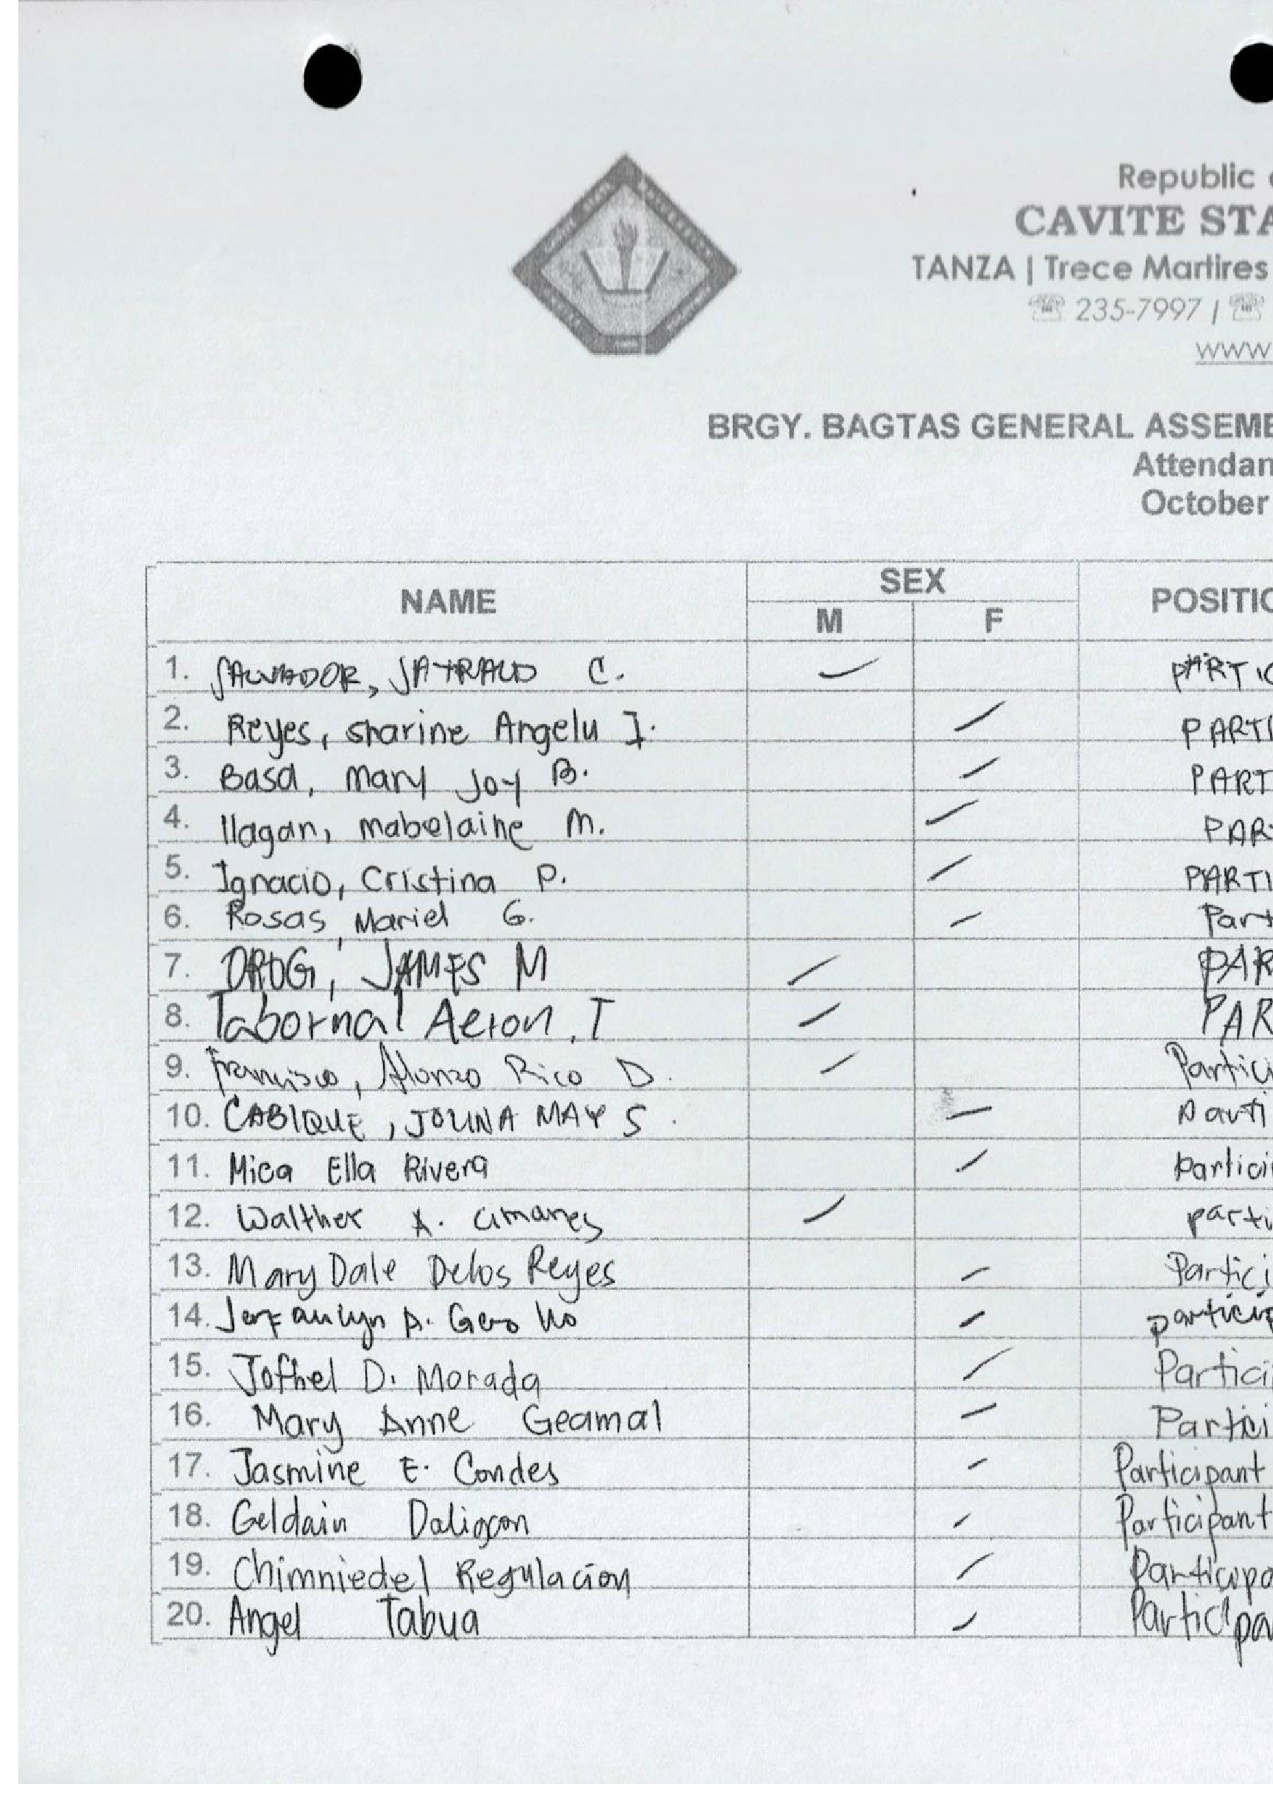 Republic
CAVITE STA
TANZA | Trece Martires
☏ 235-7997 / ☏
www
BRGY. BAGTAS GENERAL ASSEMB
Attendan
October
NAME SEX POSITIO
M F
1. SALVADOR, C. PARTIC
2. Reyes, Sharine Angelu I. PARTI
3. Basa, Mary Joy B. PART
4. Ilagan, Mabelaine M. PART
5. Ignacio, Cristina P. PARTI
6. Rosas, Mariel G. Part
7. DROG, JAMES M PAR
8. Tabornal Aeron, T PAR
9. Francisco, Alonzo Rico D. Partici
10. CABIQUE, MAY S. parti
11. Mica Ella Rivera partici
12. Walther A. parti
13. Mary Dale Delos Reyes Partici
14. A. particip
15. Jofhel D. Morada Partici
16. Mary Anne Geamal Partici
17. Jasmine E. Condes Participant
18. Geldain Participant
19. Chimniedel Regulacion Participa
20. Angel Tabua Participa